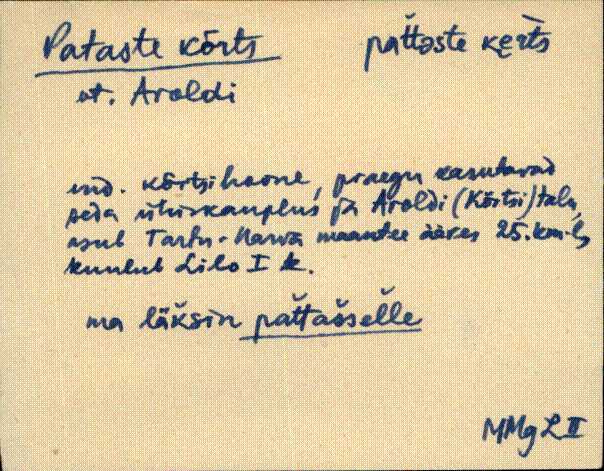 Pataste kõrts
pat̆taste kẹr̀ts
vt. Aroldi
end. kõrtsihoone, praegu kasutavad
seda ühiskauplus ja Aroldi (Kõrtsi) talu,
asub Tartu-Narva maantee ääres 25. km-l,
kuulub Lilo I k.
ma läksin pat̆tas̆sel̆le
MMg L II